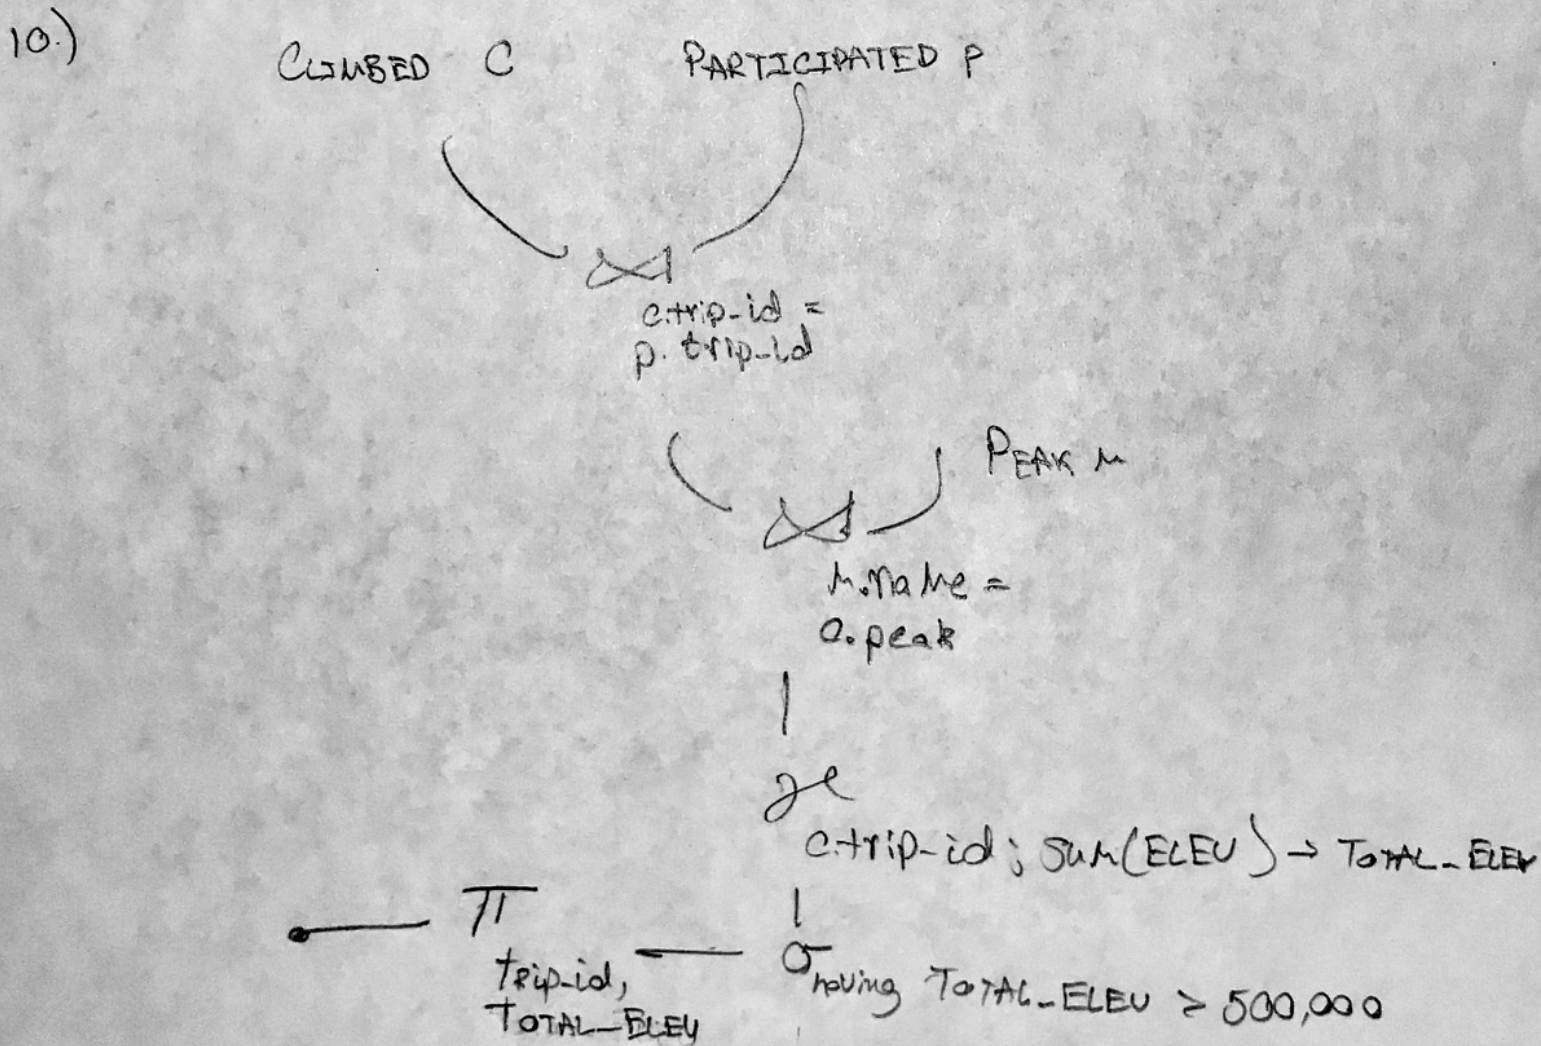 10.)
CLIMBED C PARTICIPATED P
⋈
c.trip-id =
p.trip-id
PEAK M
⋈
M.name =
C.peak
γ
c.trip-id; sum(ELEV) → TOTAL_ELEV
π
trip-id,
TOTAL_ELEV
σ having TOTAL_ELEV > 500,000